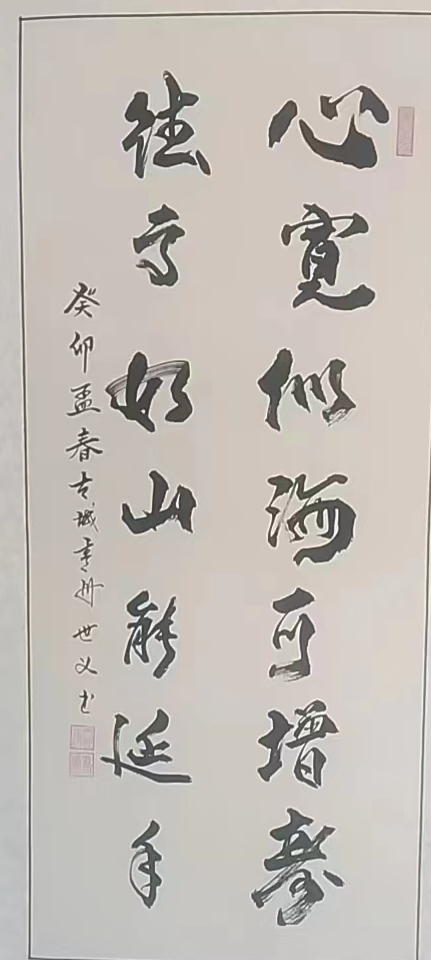 心寬似海可增壽
德高如山能延年
癸卯孟春古城青州世义书